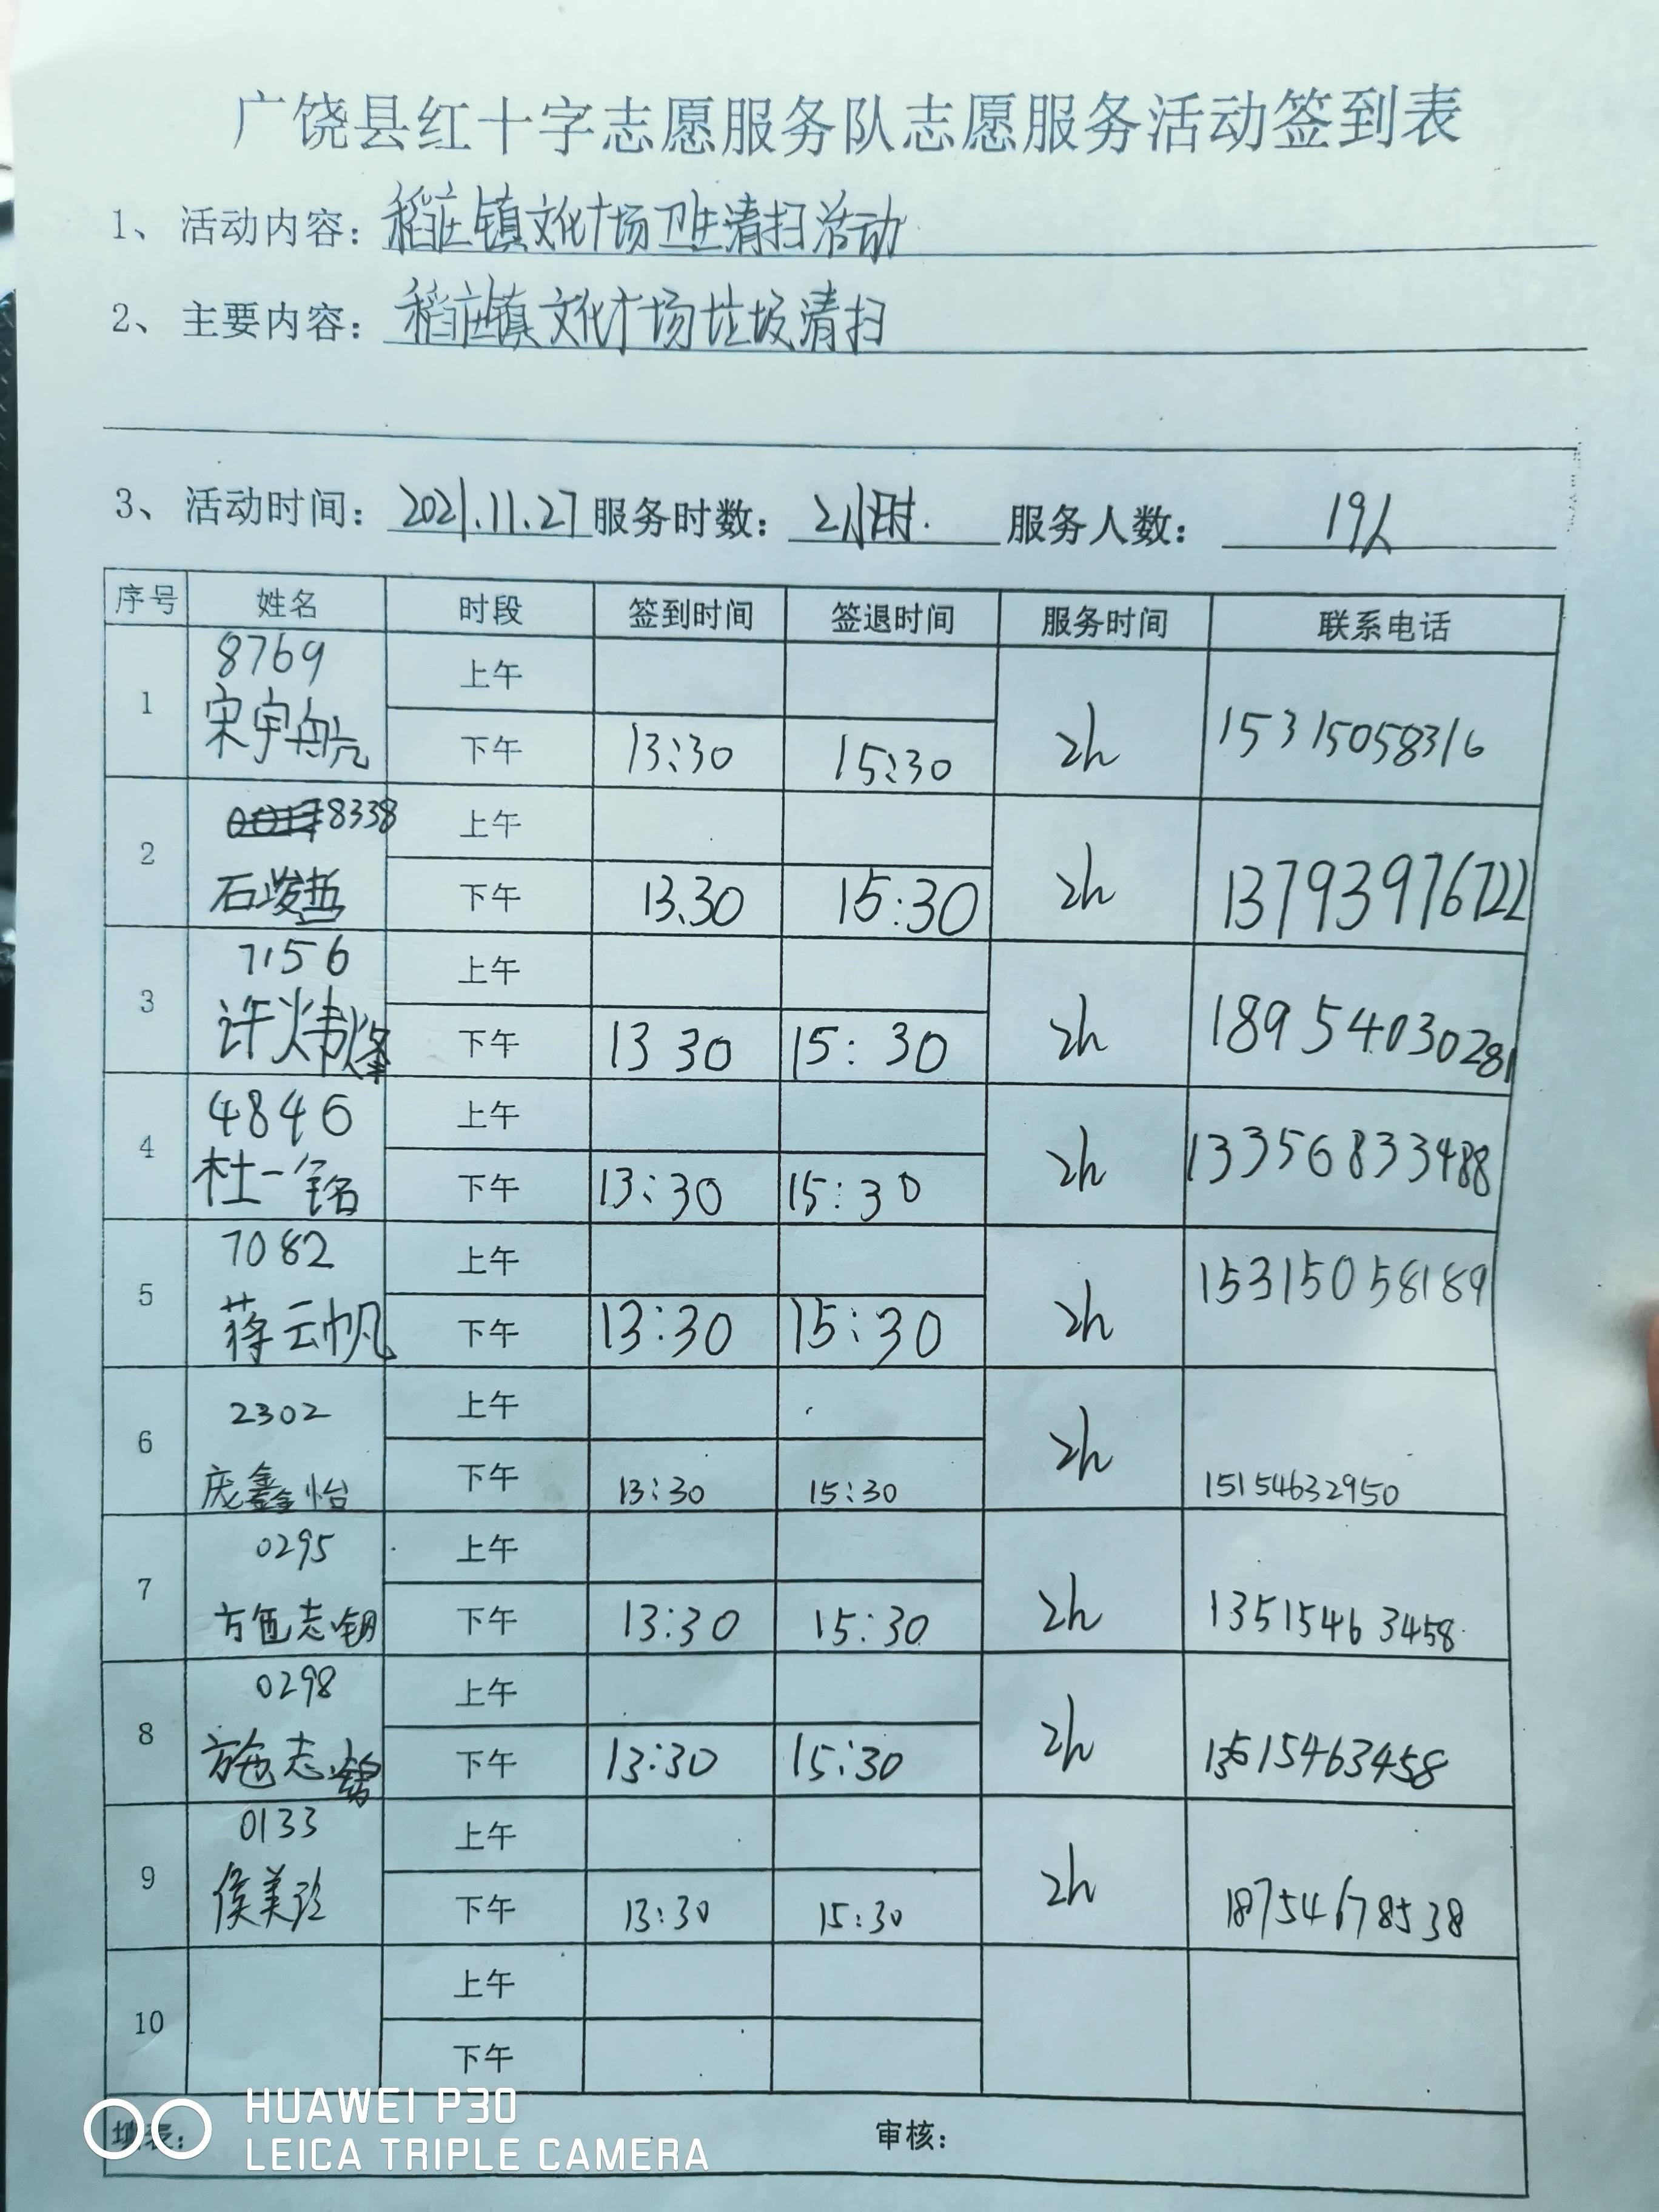 广饶县红十字志愿服务队志愿服务活动签到表
1、活动内容：稻庄镇文化广场卫生清扫活动
2、主要内容：稻庄镇文化广场垃圾清扫
3、活动时间：2021.11.27 服务时数：2小时. 服务人数：19人
序号 姓名 时段 签到时间 签退时间 服务时间 联系电话
8769
1 宋宇航 上午
下午 13:30 15:30 2h 15315058316
8338
2 石峻哲 上午
下午 13.30 15:30 2h 13793976722
7156
3 许炜烽 上午
下午 13 30 15:30 2h 18954030281
4846
4 杜一铭 上午
下午 13:30 15:30 2h 13356833488
7082
5 蒋云帆 上午
下午 13:30 15:30 2h 15315058189
2302
6 庞鑫怡 上午
下午 13:30 15:30 2h 15154632950
0295
7 志 上午
下午 13:30 15:30 2h 13515463458
0298
8 施志 上午
下午 13:30 15:30 2h 13515463458
0133
9 侯美玲 上午
下午 13:30 15:30 2h 18754678538
10 上午
下午
填表： 审核：
HUAWEI P30
LEICA TRIPLE CAMERA